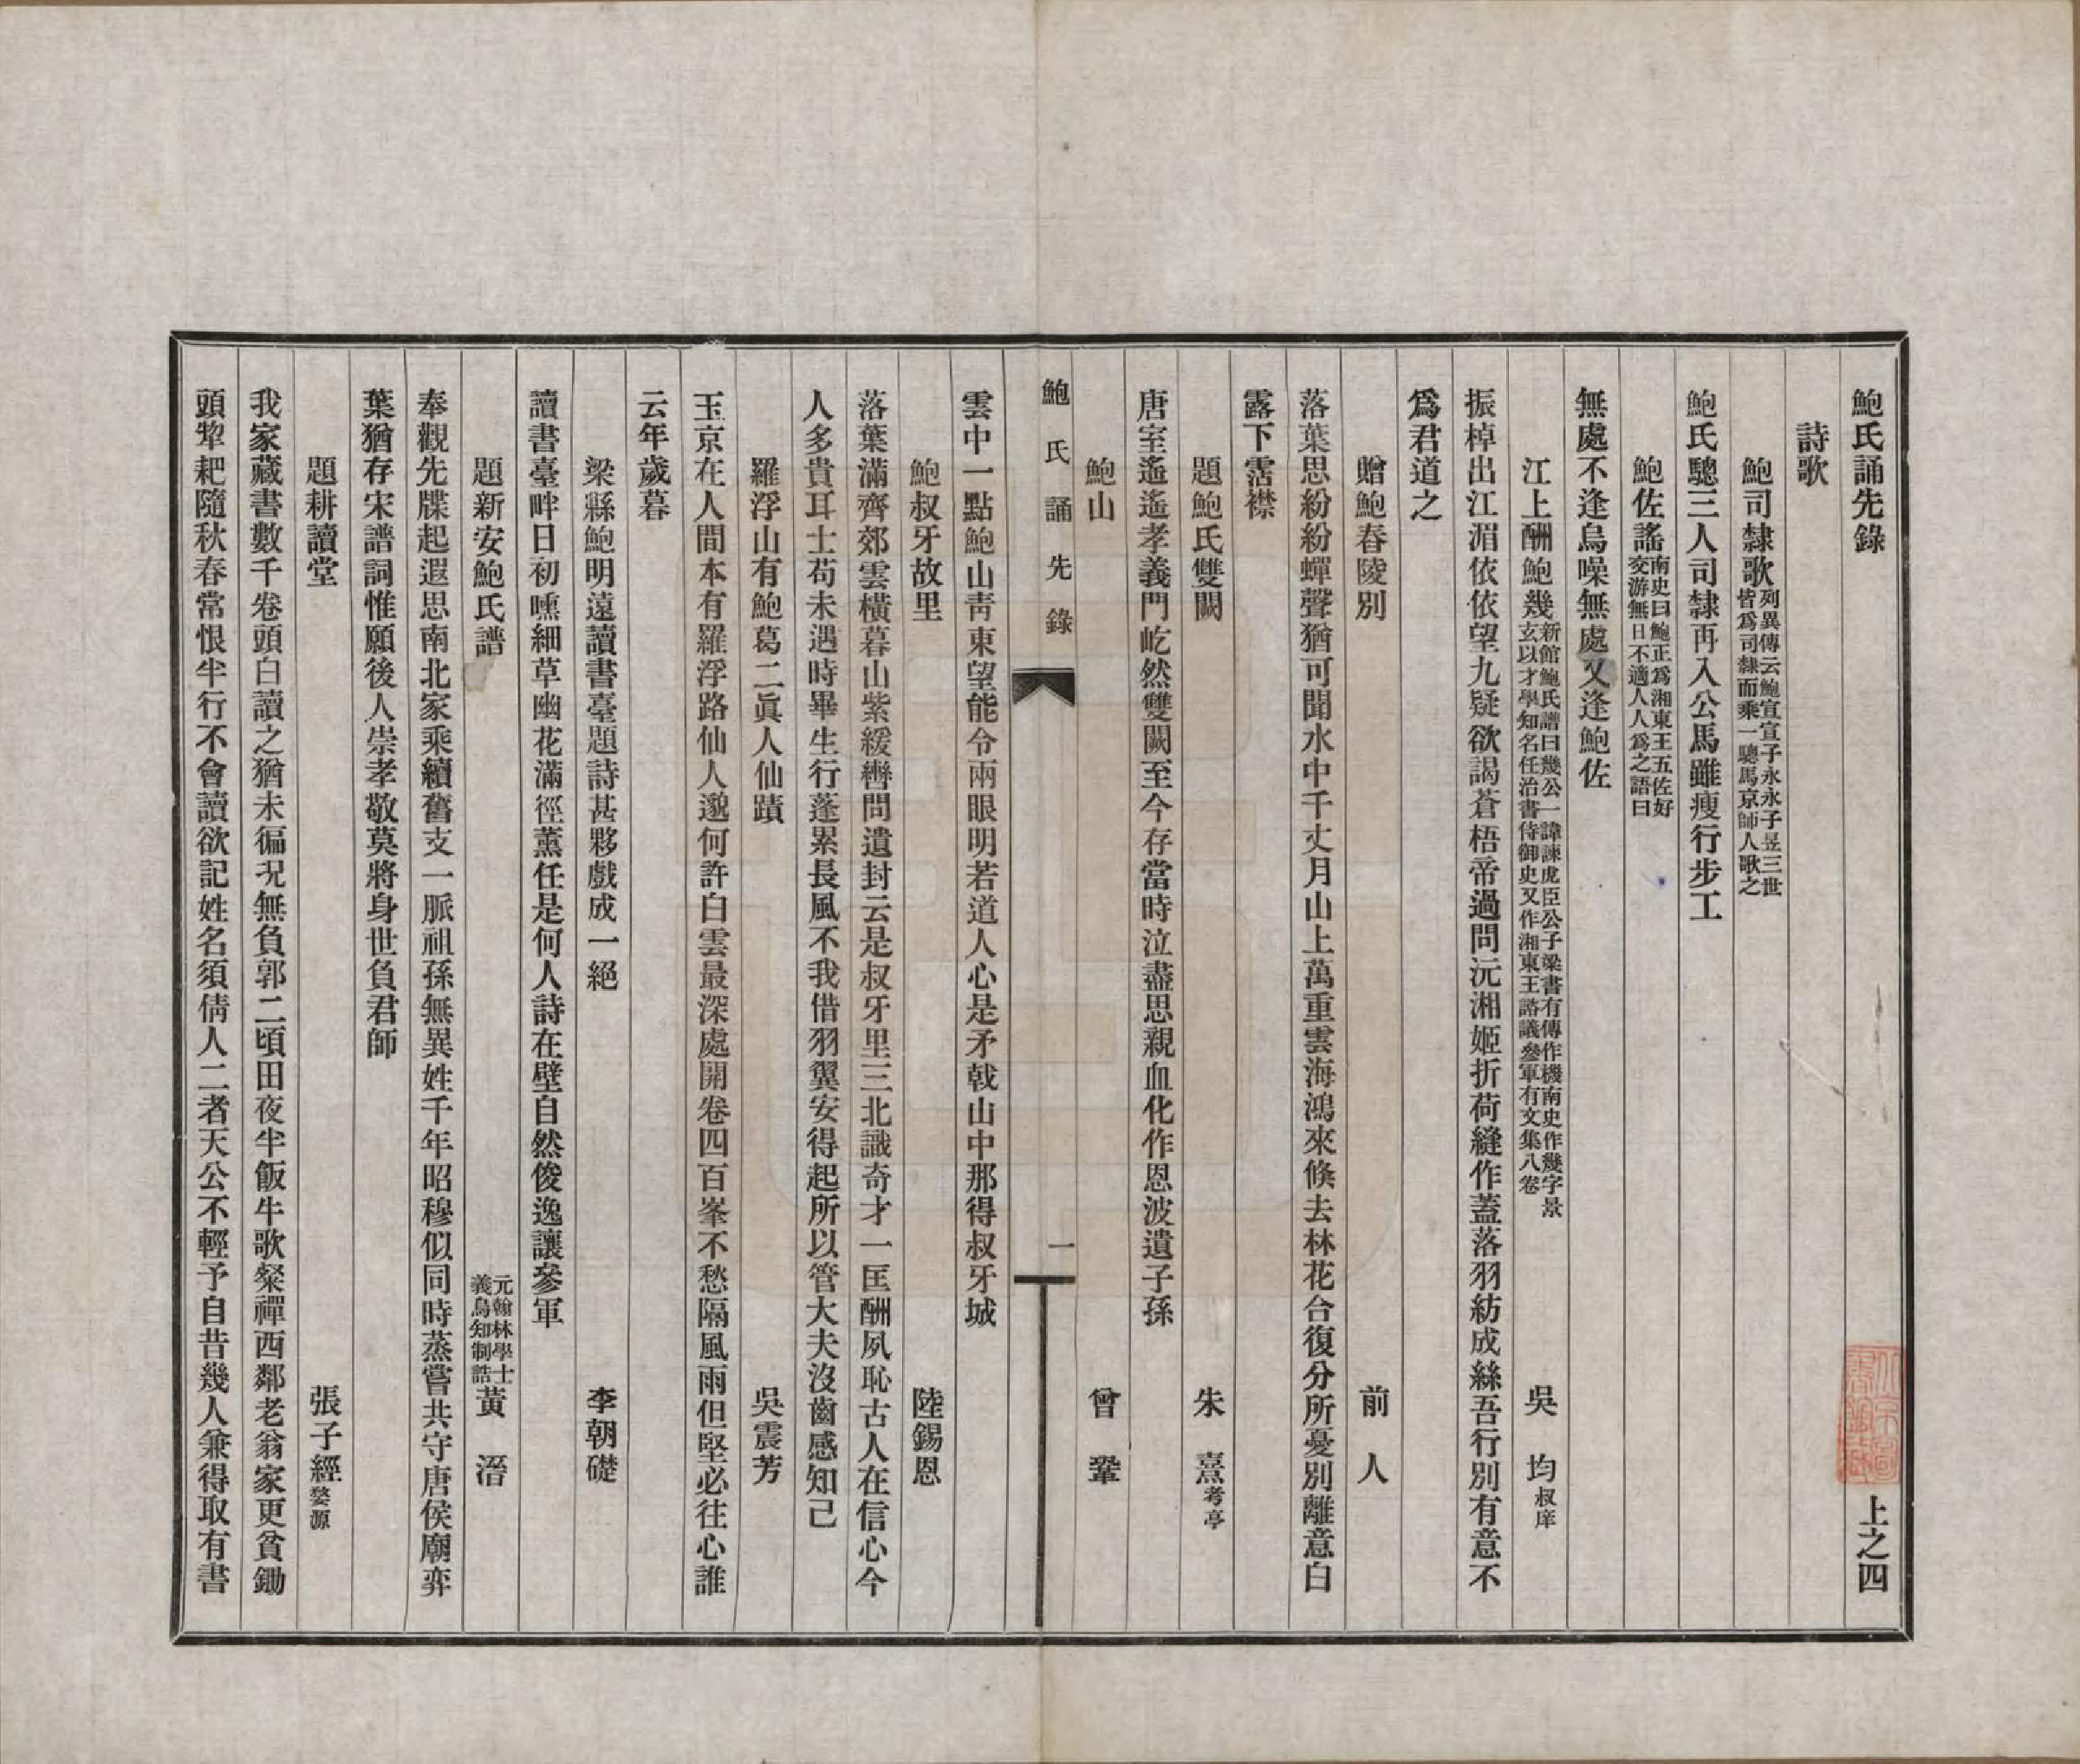 鮑氏誦先錄　上之四
詩歌
鮑司隸歌列異傳云鮑宣宣子永永子昱三世皆爲司隸而乘一驄馬京師人歌之
鮑氏驄三人司隸再入公馬雖瘦行步工
鮑佐謠南史曰鮑正爲湘東王五佐好交游無日不適人人爲之語曰
無處不逢烏噪無處又逢鮑佐
江上酬鮑幾新館鮑氏譜曰幾公一諱諫虎臣公子梁書有傳作機南史作幾字景玄以才學知名任治書侍御史又作湘東王諮議參軍有文集八卷　吳均叔庠
振棹出江湄依依望九疑欲謁蒼梧帝過問沅湘姬折荷縫作蓋落羽紡成絲吾行別有意不
爲君道之
贈鮑舂陵別　前人
落葉思紛紛蟬聲猶可聞水中千丈月山上萬重雲海鴻來倏去林花合復分所憂別離意白
露下霑襟
題鮑氏雙闕　朱熹考亭
唐室遙遙孝義門屹然雙闕至今存當時泣盡思親血化作恩波遺子孫
鮑山　曾鞏
鮑氏誦先錄　一
雲中一點鮑山靑東望能令兩眼明若道人心是矛戟山中那得叔牙城
鮑叔牙故里　陸錫恩
落葉滿齊郊雲橫暮山紫緩轡問遺封云是叔牙里三北識奇才一匡酬夙恥古人在信心今
人多貴耳士苟未遇時畢生行蓬累長風不我借羽翼安得起所以管大夫沒齒感知己
羅浮山有鮑葛二眞人仙蹟　吳震芳
玉京在人間本有羅浮路仙人邈何許白雲最深處開卷四百峯不愁隔風雨但堅必往心誰
云年歲暮
梁縣鮑明遠讀書臺題詩甚夥戲成一絕　李朝礎
讀書臺畔日初曛細草幽花滿徑薰任是何人詩在壁自然俊逸讓參軍
題新安鮑氏譜　元翰林學士義烏知制誥黃溍
奉觀先牒起遐思南北家乘續舊支一脈祖孫無異姓千年昭穆似同時蒸嘗共守唐侯廟弈
葉猶存宋譜詞惟願後人崇孝敬莫將身世負君師
題耕讀堂　張子經婺源
我家藏書數千卷頭白讀之猶未徧況無負郭二頃田夜半飯牛歌粲禪西鄰老翁家更貧鋤
頭犂耙隨秋春常恨半行不會讀欲記姓名須倩人二者天公不輕予自昔幾人兼得取有書